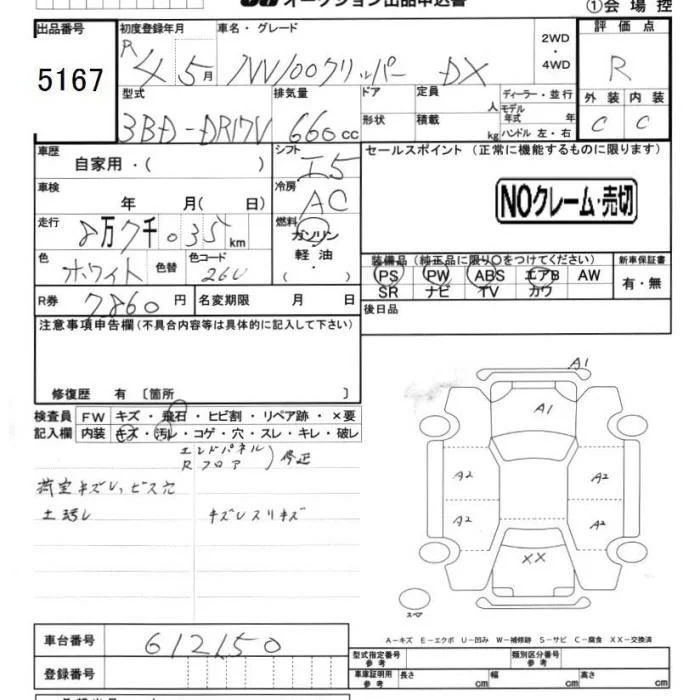 オークション出品申込書
①会場控
出品番号
5167
初度登録年月
R4 5月
車名・グレード
NV100クリッパー DX
2WD
・
4WD
評価点
R
外装 内装
C C
型式
3BD-DR17V
排気量
660cc
ドア
形状
定員 人
積載 kg
ディーラー・並行
モデル
年式 年
ハンドル 左・右
車歴
自家用・( )
シフト
I5
車検
年 月( 日)
冷房
AC
走行
8万7千035km
燃料
ガソリン
軽油
・
( )
色
ホワイト
色替
色コード
26U
R券 7860円
名変期限 月 日
セールスポイント (正常に機能するものに限ります)
NOクレーム・売切
装備品(純正品に限り○をつけてください)
PS PW ABS エアB AW
SR ナビ TV カワ
新車保証書
有・無
後日品
注意事項申告欄(不具合内容等は具体的に記入して下さい)
修復歴 有 〔箇所 〕
検査員
記入欄
FW キズ・飛石・ヒビ割・リペア跡・×要
内装 キズ・汚レ・コゲ・穴・スレ・キレ・破レ
エンドパネル
Rフロア
)修正
荷室キズレ、ビス穴
土誘レ キズレスリキズ
A1
A1
A2 A2
A2 A2
XX
スペア
A-キズ E-エクボ U-凹み W-補修跡 S-サビ C-腐食 XX-交換済
車台番号
612150
登録番号
型式指定番号
参考
類別区分番号
参考
車庫証明用
参考
長さ cm
幅 cm
高さ cm